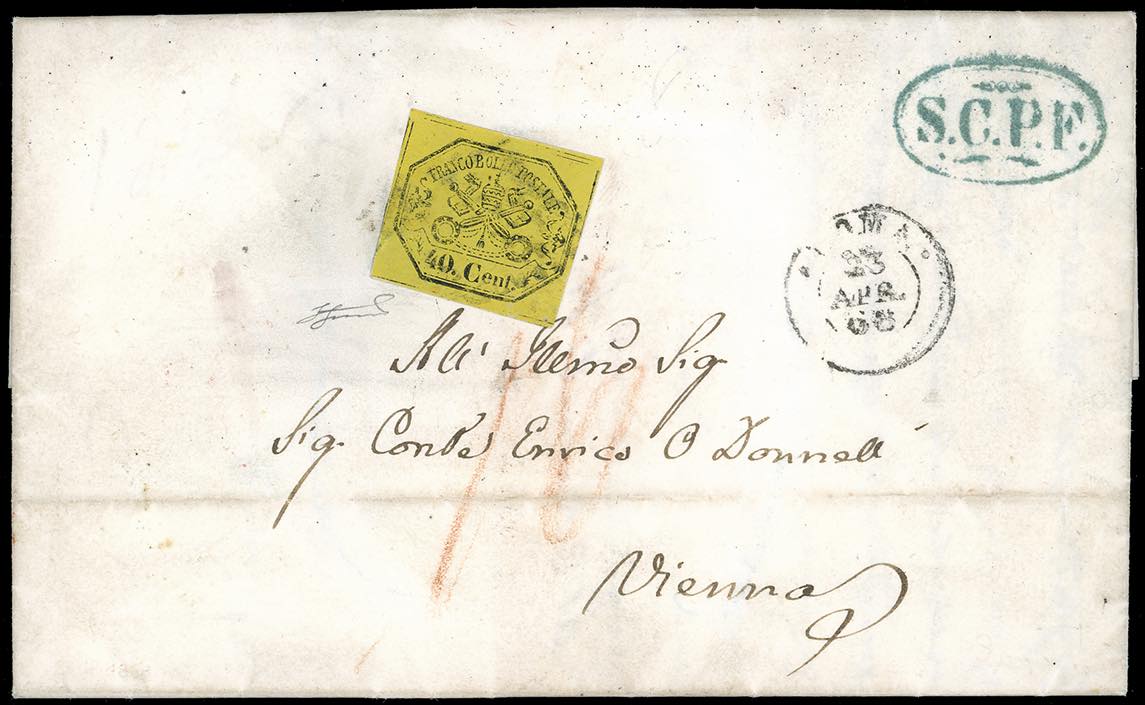 S.C.P.F.
FRANCO BOLLO POSTALE
40. Cent.
ROMA
23
APR
68
All' Illmo Sig
Sig. Conte Enrico O Donnell
Vienna